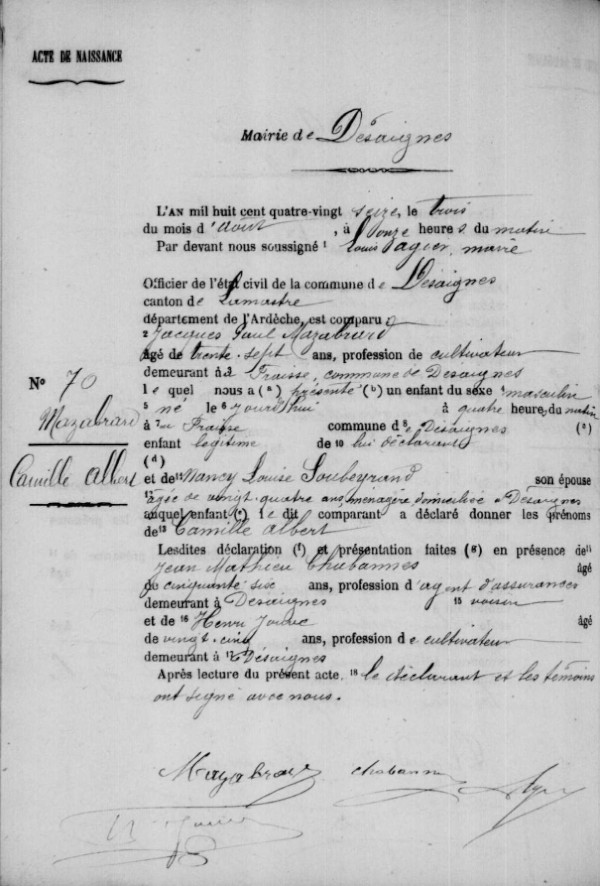 ACTE DE NAISSANCE
Mairie de Désaignes
L'AN mil huit cent quatre-vingt seize, le trois
du mois d'août, à onze heures du matin
Par devant nous soussigné 1 Louis maire
Officier de l'état civil de la commune de Désaignes
canton de Lamastre
département de l'Ardèche, est comparu
2 Jacques Paul Mazabrard
âgé de trente-sept ans, profession de cultivateur
demeurant à 3 Fraisse, commune de Désaignes
N° 70
Mazabrard
Camille Albert
lequel nous a (a) présenté (b) un enfant du sexe 4 masculin
5 né le 6 jourd'hui à quatre heures du matin
à 7 au Fraisse commune d 8 e Désaignes (c)
enfant légitime de 10 lui déclarant
(d)
et de 11 Nancy Louise Soubeyrand son épouse
12 âgée de vingt quatre ans, menagère domiciliée à Désaignes
auquel enfant (e) le dit comparant a déclaré donner les prénoms
de 13 Camille Albert
Lesdites déclaration (f) et présentation faites (g) en présence de 14
Jean Mathieu Chabannes âgé
de cinquante six ans, profession d'agent d'assurances
demeurant à Desaignes 15 voisin
et de 16 Henri âgé
de vingt-cinq ans, profession de cultivateur
demeurant à 17 Désaignes
Après lecture du présent acte. 18 le déclarant et les témoins
ont signé avec nous.
Mazabrard chabannes